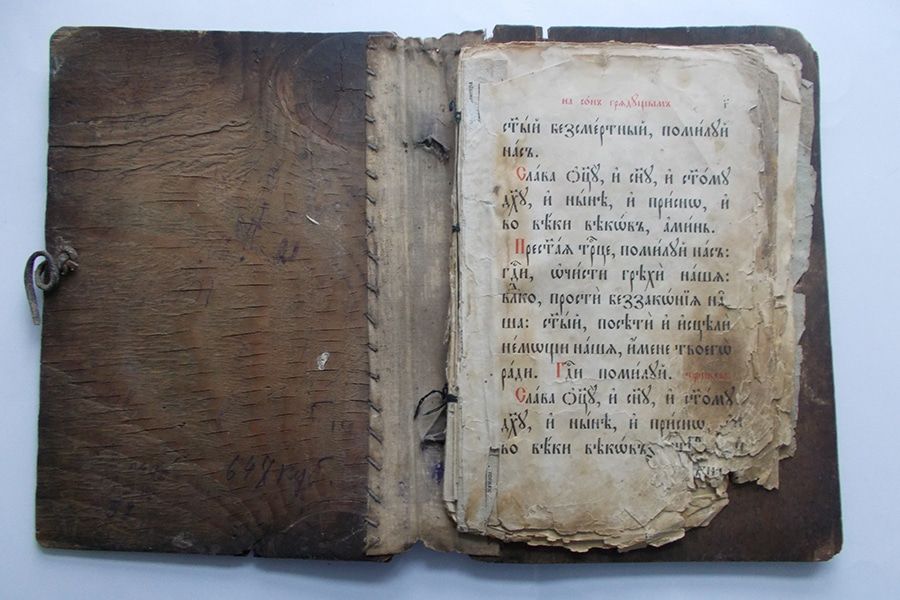 на со́нъ грѧдꙋ́щымъ г҃
ст҃ы́й безсме́ртный, поми́лꙋй
на́съ.
Сла́ва ѻ҆ц҃ꙋ̀, и҆ сн҃ꙋ, и҆ ст҃о́мꙋ
дх҃ꙋ, и҆ ны́нѣ, и҆ при́снѡ, и҆
во вѣ́ки вѣкѡ́въ, а҆ми́нь.
Прест҃а́ѧ трⷪ҇це, поми́лꙋй на́съ:
гдⷭ҇и, ѡ҆чи́сти грѣхѝ на́шѧ:
влⷣко, простѝ беззакѡ́нїѧ на́
ша: ст҃ы́й, посѣтѝ и҆ и҆сцѣлѝ
не́мѡщи на́шѧ, и҆́мене твоегѡ̀
ра́ди. Гдⷭ҇и поми́лꙋй.
Сла́ва ѻ҆ц҃ꙋ̀, и҆ сн҃ꙋ, и҆ ст҃о́мꙋ
дх҃ꙋ, и҆ ны́нѣ, и҆ при́снѡ, и҆
во вѣ́ки вѣкѡ́въ